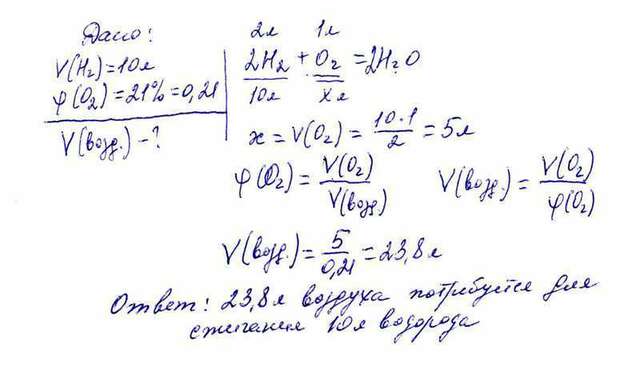 Дано:
V(H₂)=10л
φ(O₂)=21%=0,21
V(возд.)-?
2л 1л
2H₂ + O₂ = 2H₂O
10л xл
x = V(O₂) = 10·1/2 = 5л
φ(O₂) = V(O₂)/V(возд) V(возд.) = V(O₂)/φ(O₂)
V(возд.) = 5/0,21 = 23,8 л
Ответ: 23,8 л воздуха потребуется для
сжигания 10л водорода